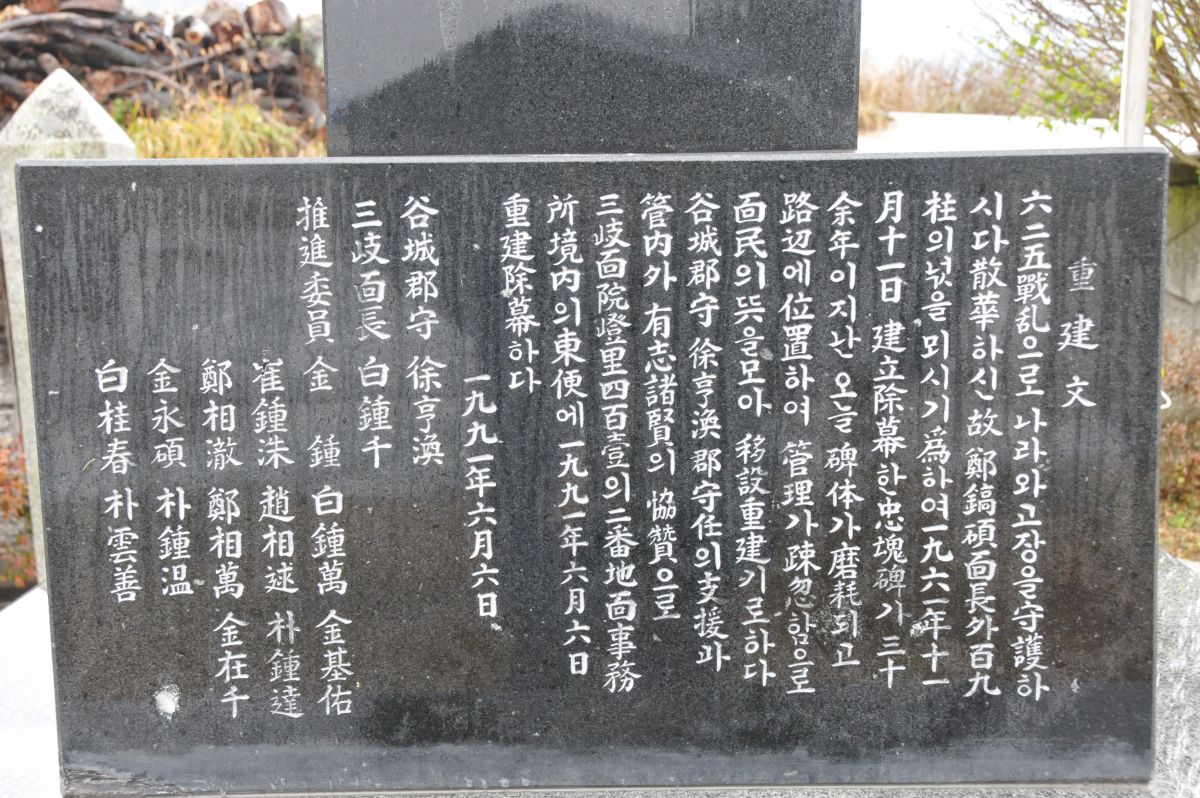 重建文
六二五戰乱으로 나라와 고장을 守護하
시다 散華하신 故 鄭鎬碩面長外百九
柱의 넋을 뫼시기 爲하여 一九六一年十一
月十一日 建立除幕한 忠塊碑가 三十
余年이 지난 오늘 碑体가 磨耗되고
路辺에 位置하여 管理가 疎忽함으로
面民의 뜻을 모아 移設重建기로하다
谷城郡守 徐亨渙 郡守任의 支援과
管内外 有志諸賢의 協贊으로
三岐面院燈里四百壹의 二番地面事務
所境内의 東便에 一九九一年六月六日
重建除幕하다
一九九一年六月六日
谷城郡守 徐亨渙
三岐面長 白鍾千
推進委員 金鍾 白鍾萬 金基佑
崔鍾洙 趙相逑 朴鍾達
鄭相澈 鄭相萬 金在千
金永碩 朴鍾温
白桂春 朴雲善